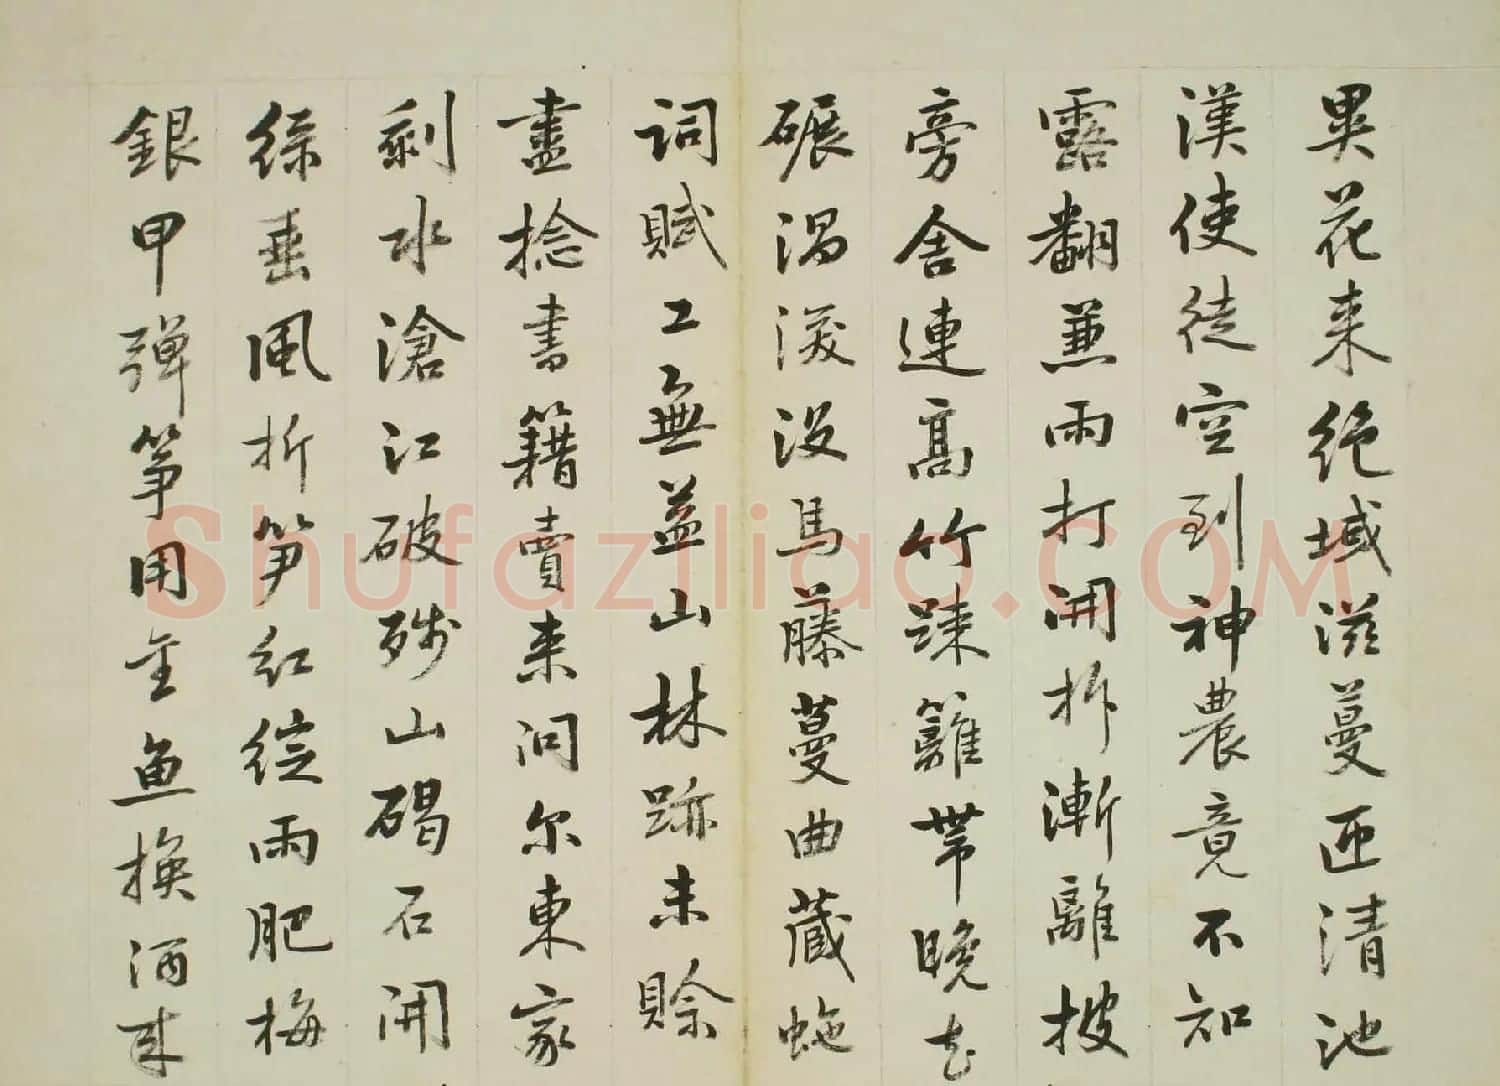 異花来絶域滋蔓匝清池
漢使徒空到神農竟不知
露翻兼雨打開拆漸離披
旁舍連高竹踈籬帶晚花
碾渦深没馬藤蔓曲藏蛇
詞賦工無益山林跡未賒
盡捻書籍賣来问尔東家
剩水滄江破殘山碣石開
緑垂風折笋紅綻雨肥梅
銀甲弹筝用金鱼换酒来
Shufaziliao.COM